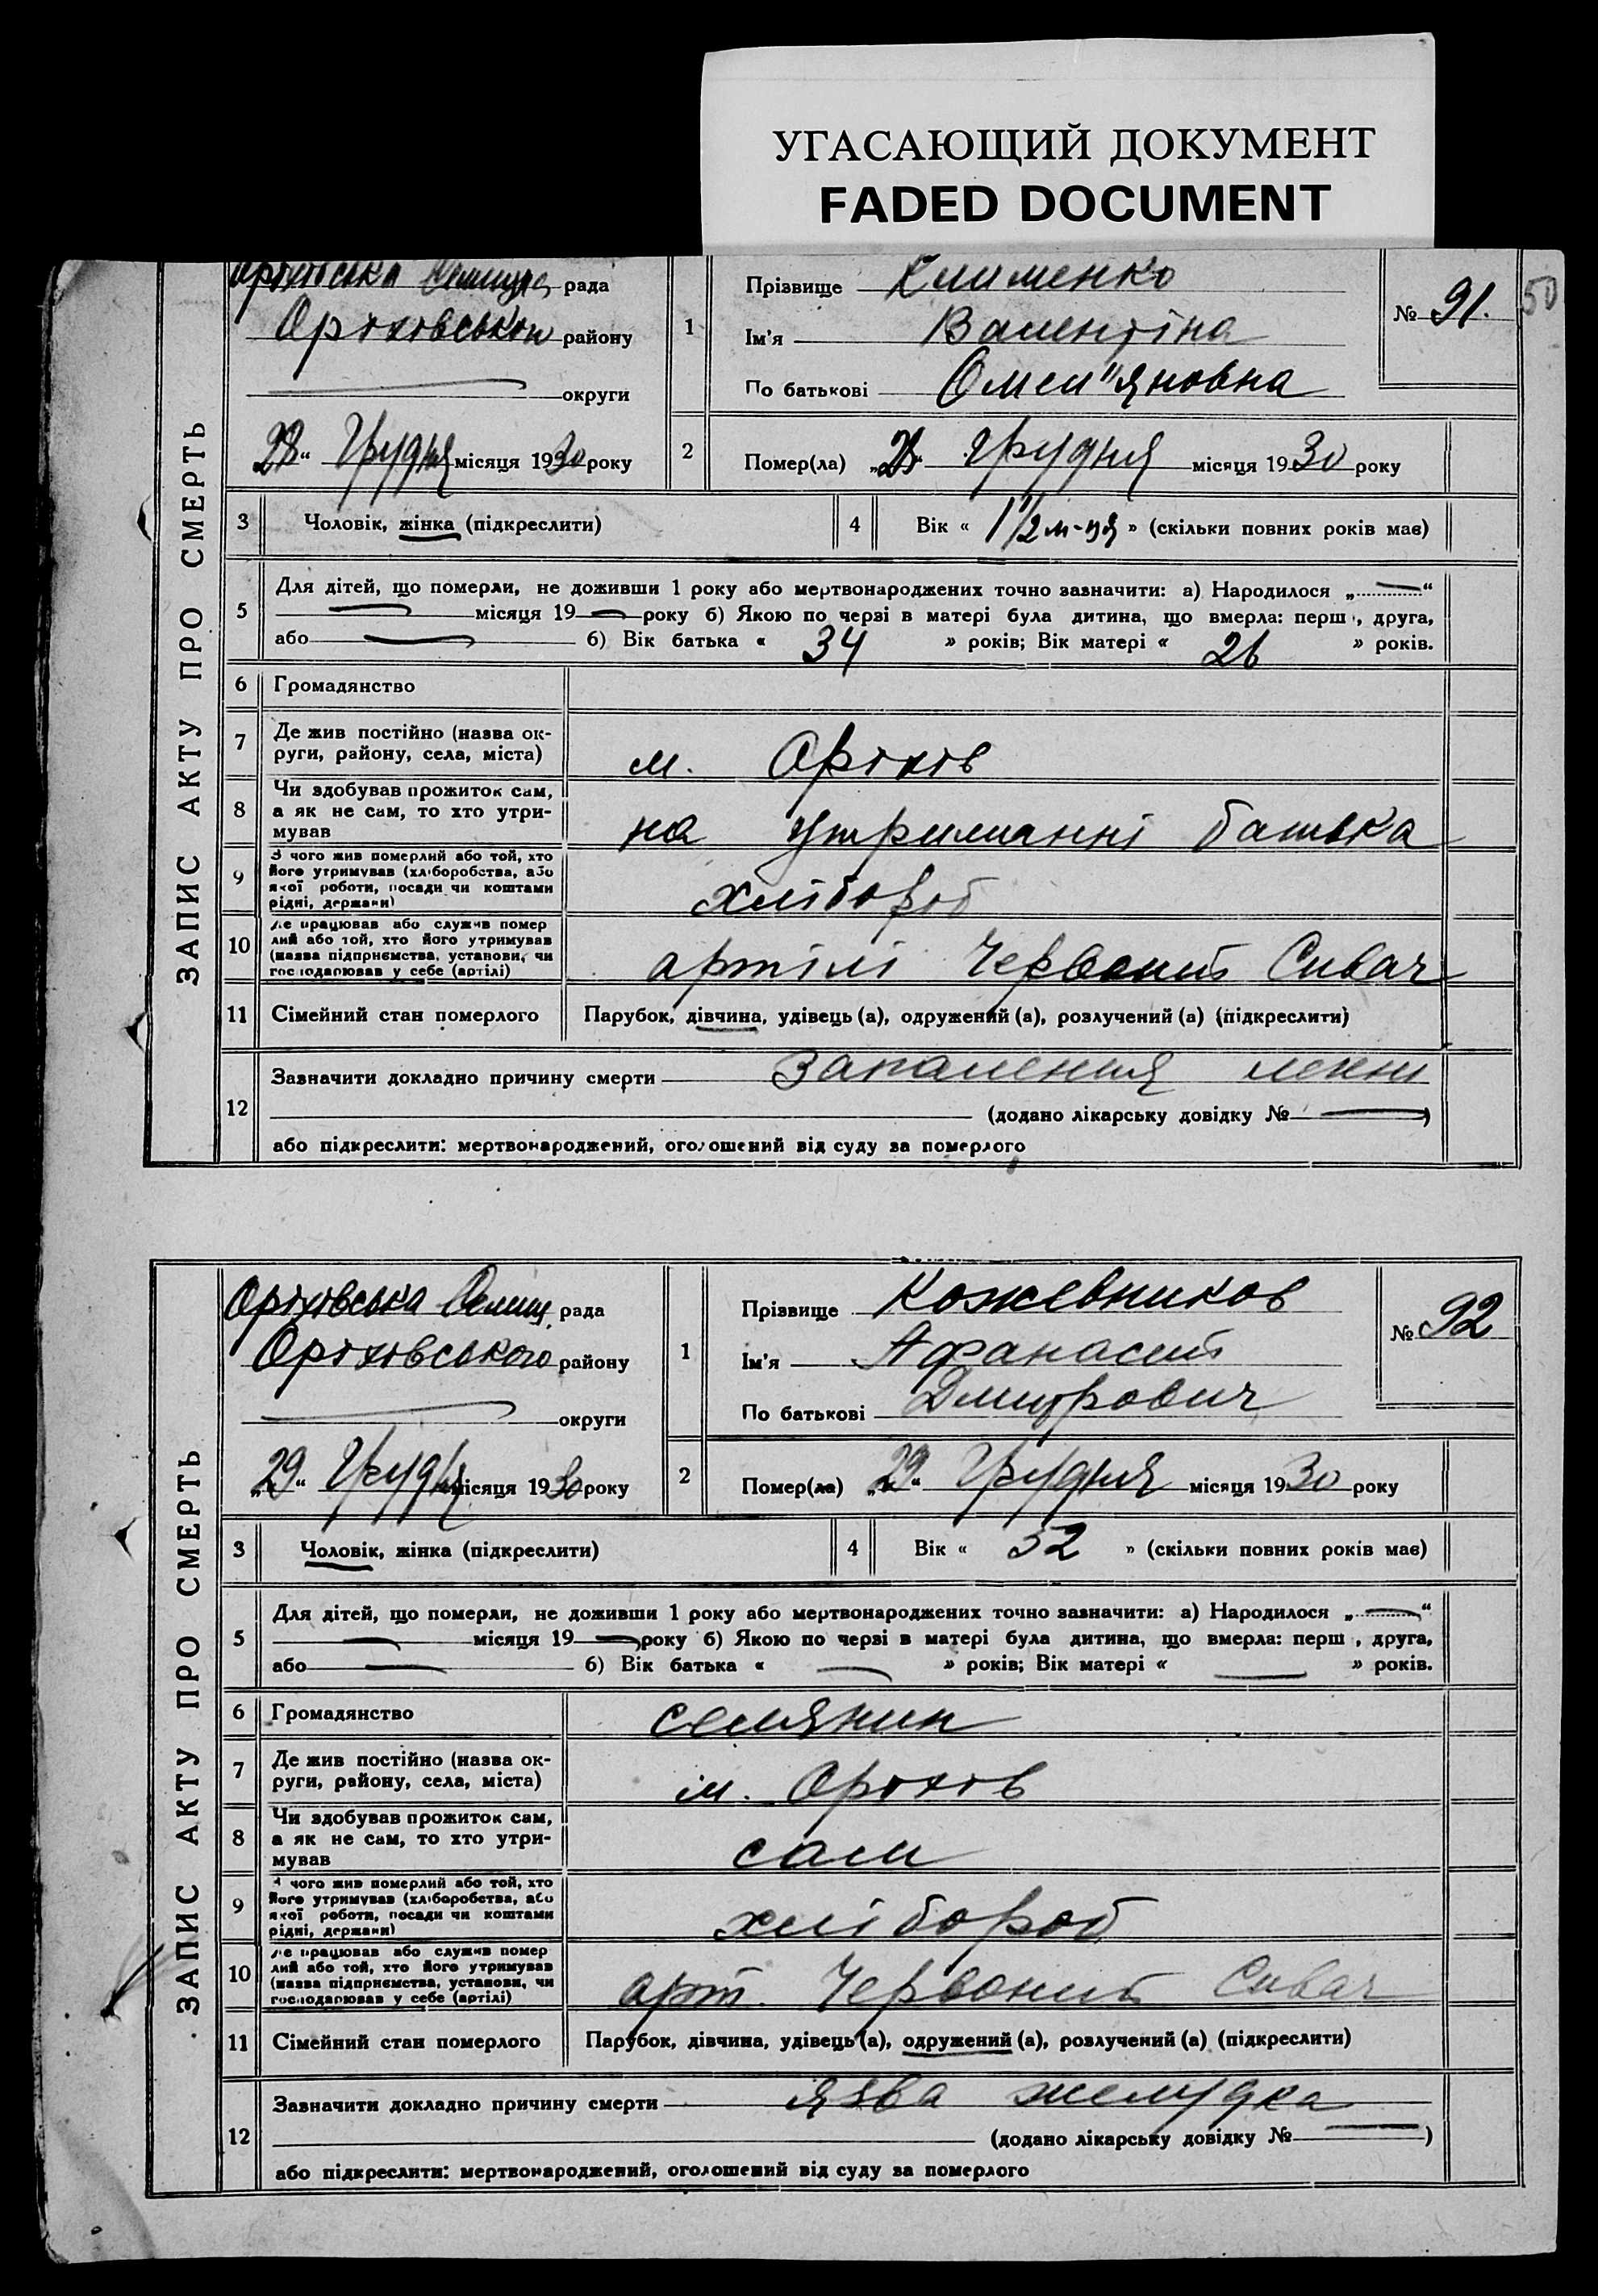 УГАСАЮЩИЙ ДОКУМЕНТ
FADED DOCUMENT
50
ЗАПИС АКТУ ПРО СМЕРТЬ
Оріхівська Селищна рада
Оріхівського району
округи
„28“ Грудня місяця 1930 року
1
Прізвище Клименко
Ім'я Валентіна
По батькові Омел"яновна
№ 91.
2
Помер(ла) „28“ Грудня місяця 1930 року
3 Чоловік, жінка (підкреслити)
4 Вік « 1 1/2 м-ця » (скільки повних років має)
5
Для дітей, що померли, не доживши 1 року або мертвонароджених точно зазначити: а) Народилося „—“
— місяця 19— року б) Якою по черзі в матері була дитина, що вмерла: перш , друга,
або — б) Вік батька « 34 » років; Вік матері « 26 » років.
6 Громадянство
7
Де жив постійно (назва ок-
руги, району, села, міста)
м. Оріхів
8
Чи здобував прожиток сам,
а як не сам, то хто утри-
мував
на утриманні батька
9
З чого жив померлий або той, хто
його утримував (хліборобства, або
якої роботи, посади чи коштами
рідні, держави)
хлібороб
10
Де працював або служив помер
лий або той, хто його утримував
(назва підприємства, установи, чи
господарював у себе (артілі)
артілі Червоний Сивач
11 Сімейний стан померлого Парубок, дівчина, удівець (а), одружений (а), розлучений (а) (підкреслити)
12
Зазначити докладно причину смерти Запалення легень
(додано лікарську довідку № —)
або підкреслити: мертвонароджений, оголошений від суду за померлого
ЗАПИС АКТУ ПРО СМЕРТЬ
Оріхівська Селищ. рада
Оріхівського району
округи
„29“ Грудня місяця 1930 року
1
Прізвище Кожевников
Ім'я Афанасий
По батькові Дмитрович
№ 92
2
Помер(ла) „29“ Грудня місяця 1930 року
3 Чоловік, жінка (підкреслити)
4 Вік « 52 » (скільки повних років має)
5
Для дітей, що померли, не доживши 1 року або мертвонароджених точно зазначити: а) Народилося „—“
— місяця 19— року б) Якою по черзі в матері була дитина, що вмерла: перш , друга,
або — б) Вік батька « — » років; Вік матері « — » років.
6 Громадянство селянин
7
Де жив постійно (назва ок-
руги, району, села, міста)
м. Оріхів
8
Чи здобував прожиток сам,
а як не сам, то хто утри-
мував
сам
9
З чого жив померлий або той, хто
його утримував (хліборобства, або
якої роботи, посади чи коштами
рідні, держави)
хлібороб
10
Де працював або служив помер
лий або той, хто його утримував
(назва підприємства, установи, чи
господарював у себе (артілі)
арт. Червоний Сивач
11 Сімейний стан померлого Парубок, дівчина, удівець (а), одружений (а), розлучений (а) (підкреслити)
12
Зазначити докладно причину смерти язва желудка
(додано лікарську довідку № —)
або підкреслити: мертвонароджений, оголошений від суду за померлого